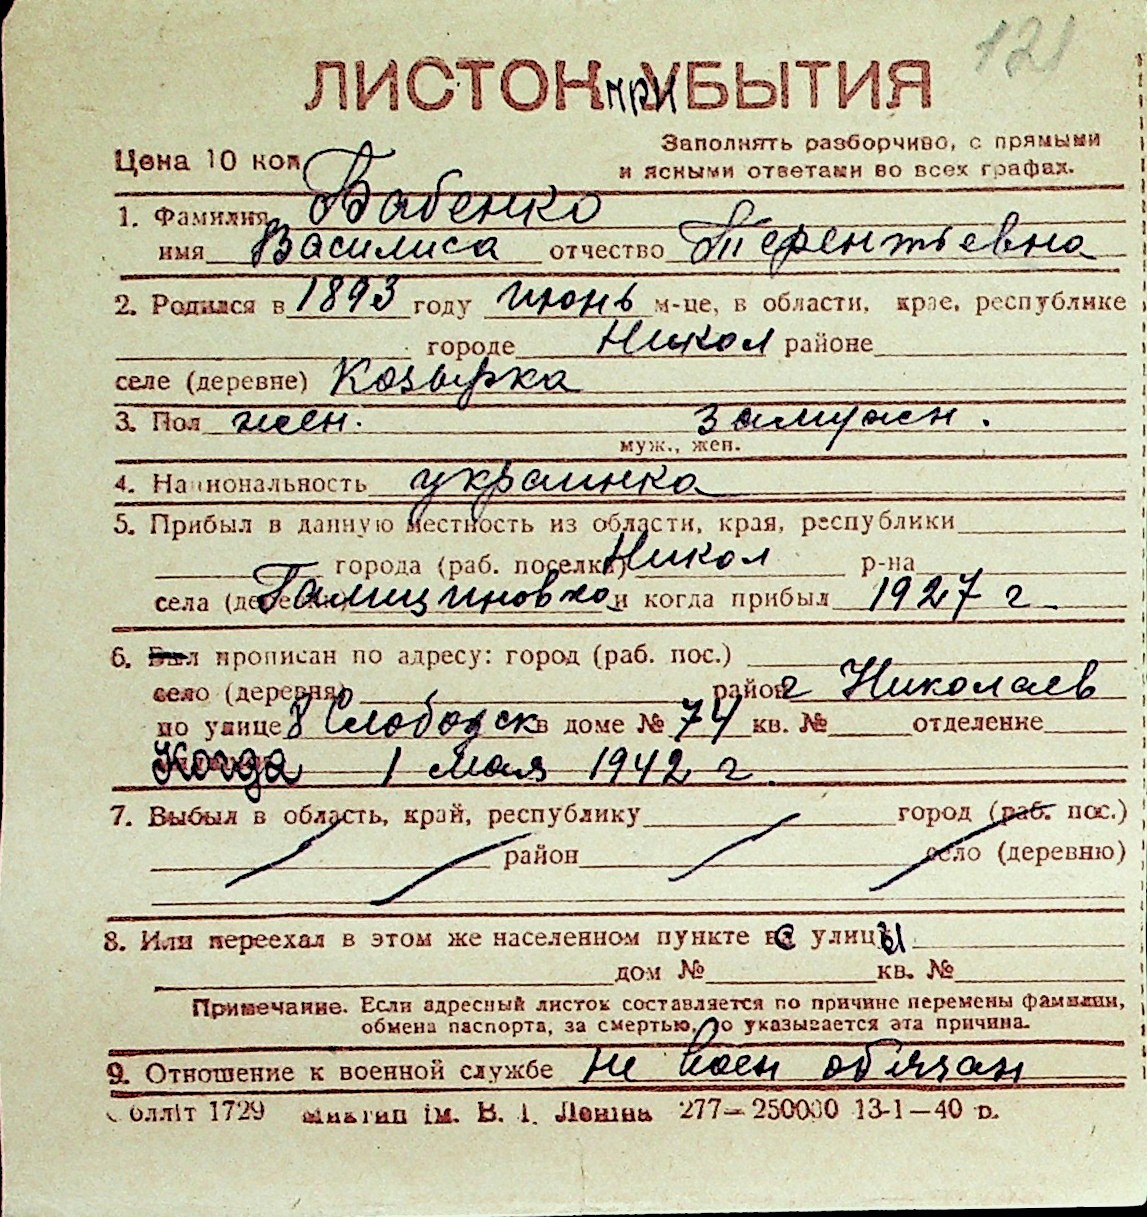 121
ЛИСТОК приУБЫТИЯ
Цена 10 коп
Заполнять разборчиво, с прямыми
и ясными ответами во всех графах.
1. Фамилия Бабенко
имя Василиса отчество Терентьевна
2. Родился в 1893 году июнь м-це, в области, крае, республике
городе Никол районе
селе (деревне) Козырка
3. Пол жен. замужн.
муж., жен.
4. Национальность украинка
5. Прибыл в данную местность из области, края, республики
города (раб. поселка) Никол р-на
села (деревни) Галициновка и когда прибыл 1927 г.
6. Был прописан по адресу: город (раб. пос.)
село (деревня) район г Николаев
по улице 8 Слободск в доме № 74 кв. № отделение
Когда 1 мая 1942 г.
7. Выбыл в область, край, республику город (раб. пос.)
район село (деревню)
8. Или переехал в этом же населенном пункте с улицы
дом № кв. №
Примечание. Если адресный листок составляется по причине перемены фамилии,
обмена паспорта, за смертью, то указывается эта причина.
9. Отношение к военной службе не воен обязан
Облліт 1729 ім. В. І. Леніна 277—250000 13-1—40 р.